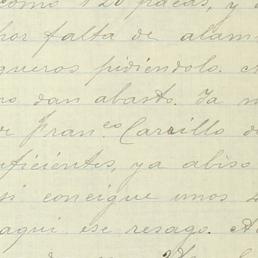 como 120 pacas, y
por falta de alam
queros pidiéndolo.
no dan abasto. Ya
Fran.co Carrillo d
uficientes, ya abiso
si concigue unos
aqui ese resago.